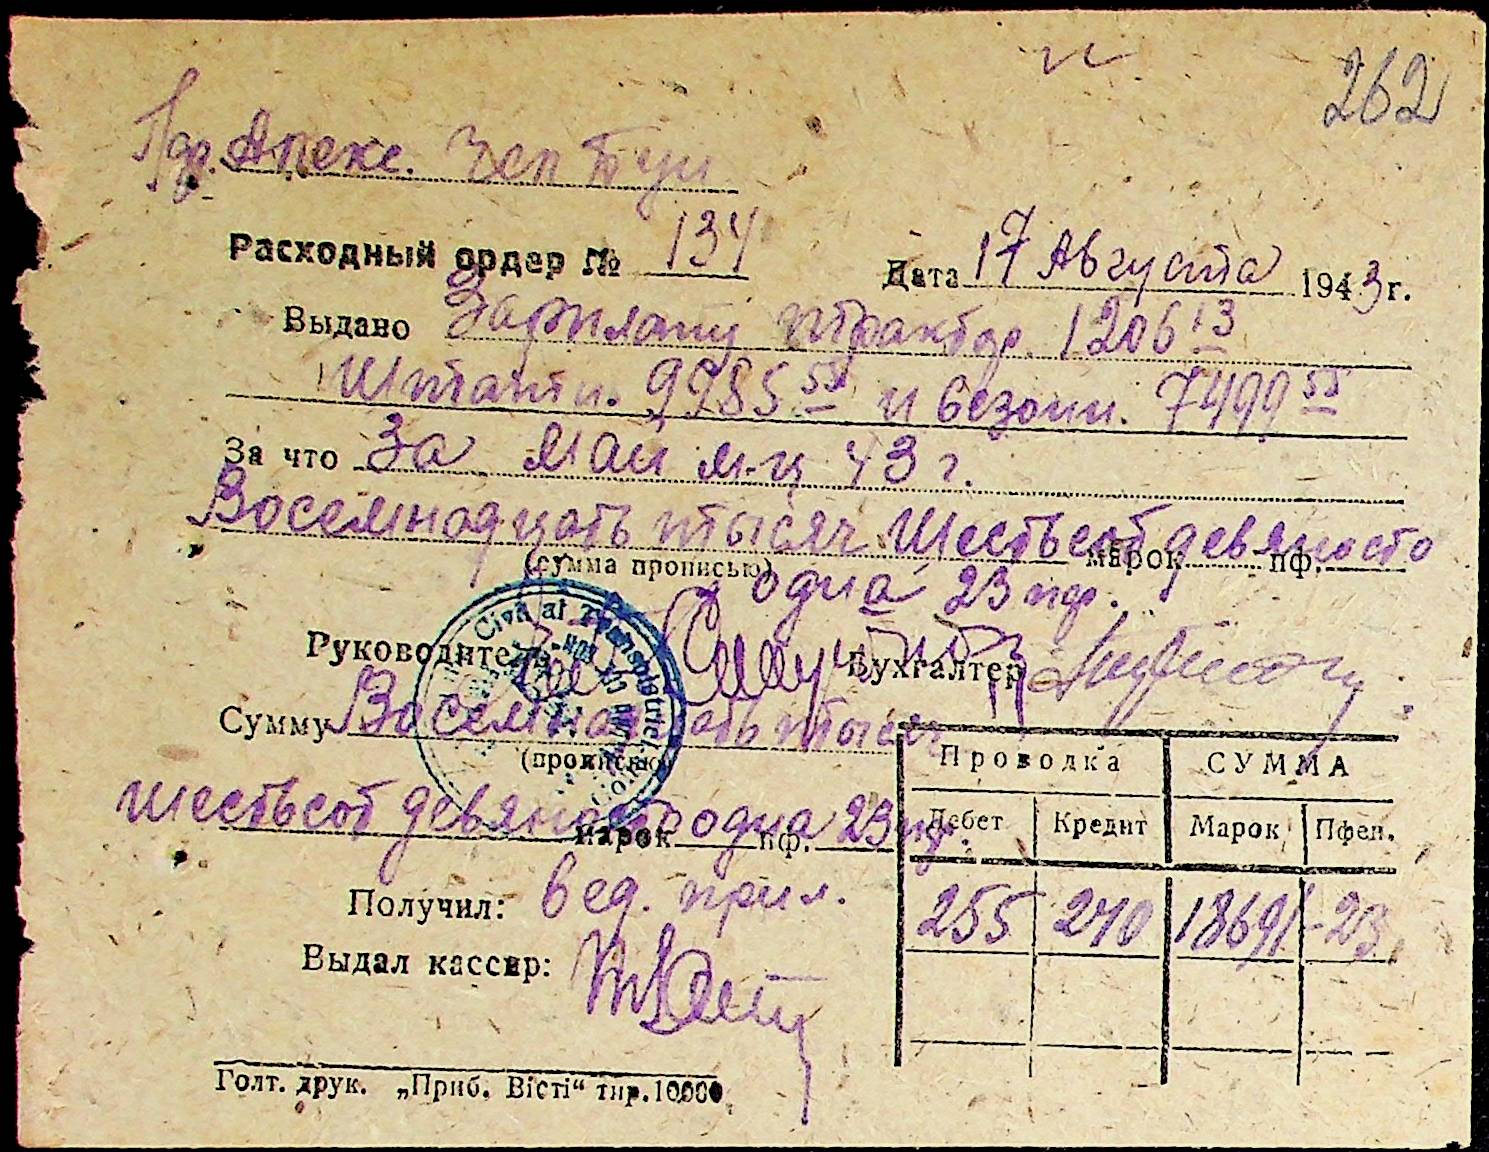 262
Гдр. Алекс. Зеп Туи
Расходный ордер № 134 Дата 17 Августа 1943 г.
Выдано Зарплату трактор. 1206 13
Штатн. 9985 55 и сезонн. 7499 55
За что За май м-ц 43 г.
Восемнадцать тысяч шестьсот девяносто
(сумма прописью) марок пф.
одна 23 пф.
Руководитель Бухгалтер
Сумму Восемнадцать тысяч
(прописью)
шестьсот девяносто одна 23 пф.
марок пф.
Получил: вед. прил.
Выдал кассир:
Проводка СУММА
Дебет Кредит Марок Пфен.
255 240 18691 - 23
Голт. друк. „Приб. Вісті“ тир. 10000